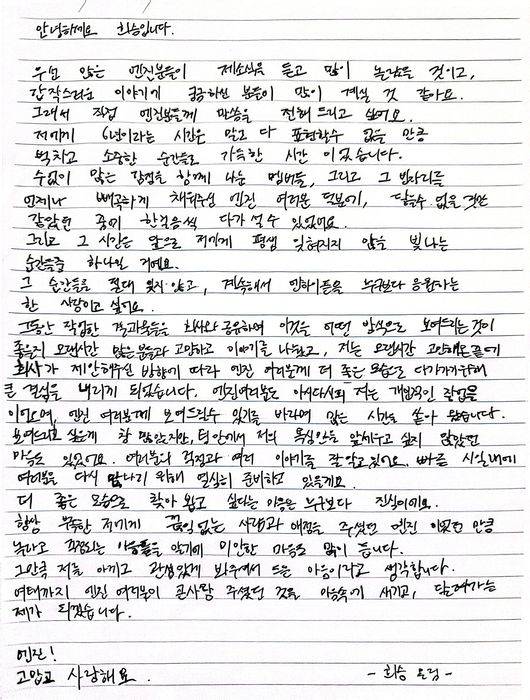 안녕하세요 희승입니다.
우선 많은 엔진분들이 제소식을 듣고 많이 놀랐을 것이고,
갑작스러운 이야기에 궁금하신 분들이 많이 계실 것 같아요.
그래서 직접 엔진분들께 말씀을 전해 드리고 싶어요.
저에게 6년이라는 시간은 말로 다 표현할수 없을 만큼
벅차고 소중한 순간들로 가득한 시간 이었습니다.
수없이 많은 감정을 함께 나눈 멤버들, 그리고 그 빈자리를
언제나 빼곡하게 채워주신 엔진 여러분 덕분에, 닿을수 없을 것만
같았던 꿈에 한걸음씩 다가 설 수 있었어요.
그리고 그 시간은 앞으로 저에게 평생 잊혀지지 않을 빛나는
순간들중 하나일 거예요.
그 순간들을 절대 잊지 않고, 계속해서 엔하이픈을 누구보다 응원하는
한 사람이고 싶어요.
그동안 작업한 결과물들을 회사와 공유하며 이것을 어떤 방식으로 보여드리는것이
좋을지 오랜시간 많은분들과 고민하고 이야기를 나눴고, 저는 오랜시간 고민해온끝에
회사가 제안해주신 방향에 따라 엔진 여러분께 더 좋은 모습으로 다가가기위해
큰 결심을 내리게 되었습니다. 엔진여러분도 아시다시피 저는 개인적인 작업을
이어오며, 엔진 여러분께 보여드릴수 있기를 바라며 많은 시간을 쏟아 왔습니다.
보여드리고 싶은게 참 많았지만, 팀 안에서 저의 욕심만을 앞세우고 싶지 않았던
마음도 있었어요. 여러분의 걱정과 여러 이야기를 잘 알고있어요. 빠른 시일내에
여러분을 다시 만나기 위해 열심히 준비하고 있을게요.
더 좋은 모습으로 찾아 뵙고 싶다는 마음은 누구보다 진심이에요.
항상 부족한 저에게 끊임 없는 사랑과 애정을 주셨던 엔진 이였던 만큼
놀라고 걱정되는 마음들을 알기에 미안한 마음도 많이 듭니다.
그만큼 저를 아끼고 관심있게 봐주셔서 드는 마음이라고 생각합니다.
여태까지 엔진 여러분이 큰사랑 주셨던 것을 마음속에 새기고, 달려가는
제가 되겠습니다.
엔진!
고맙고 사랑해요.
- 희승 올림 -